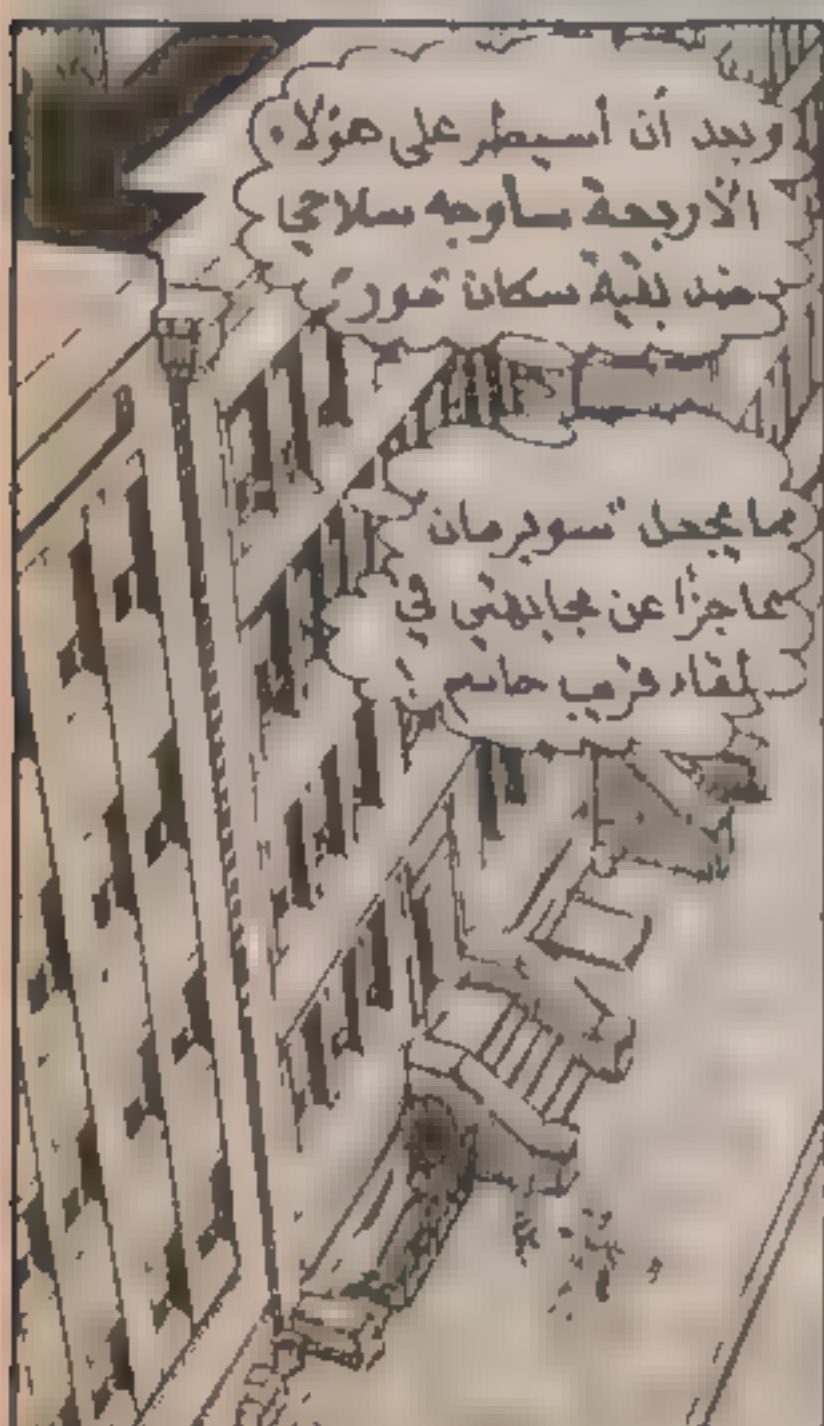 وبعد أن أسيطر على هؤلاء
الأربعة سأوجه سلاحي
ضد بقية سكان "مور"
مما يجعل "سوبرمان
عاجزاً عن مجابهتي في
لقاء قريب حاسم !